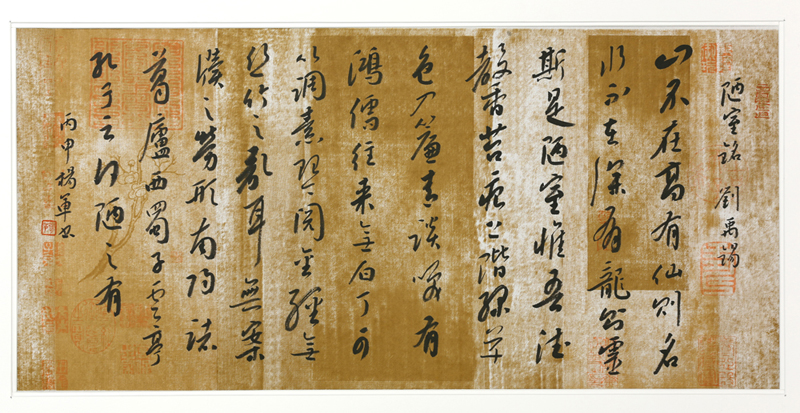 陋室銘 劉禹錫
山不在高有仙則名
水不在深有龍則靈
斯是陋室惟吾德
馨苔痕上階綠草
色入簾青談笑有
鴻儒往來無白丁可
以調素琴閱金經無
絲竹之亂耳無案
牘之勞形南陽諸
葛廬西蜀子雲亭
孔子云何陋之有
丙申楊軍書